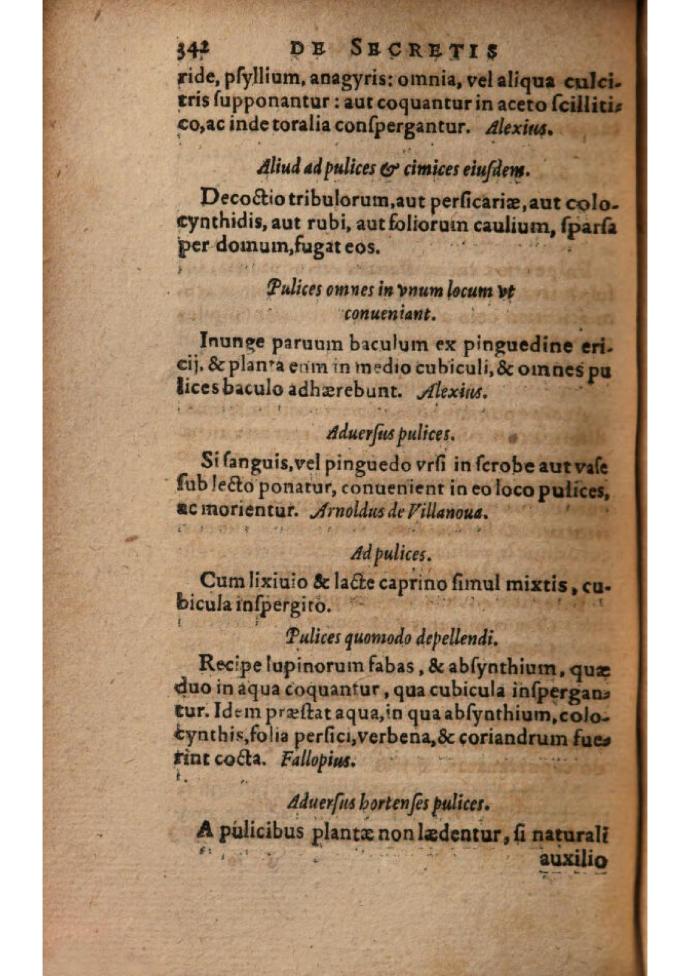 342 DE SECRETIS
ride, pſyllium, anagyris: omnia, vel aliqua culci-
tris ſupponantur : aut coquantur in aceto ſcilliti-
co, ac inde toralia conſpergantur. Alexius.
Aliud ad pulices & cimices eiuſdem.
Decoctio tribulorum, aut perſicariæ, aut colo-
cynthidis, aut rubi, aut foliorum caulium, ſparſa
per domum, fugat eos.
Pulices omnes in vnum locum vt
conueniant.
Inunge paruum baculum ex pinguedine eri-
cij. & planta eum in medio cubiculi, & omnes pu
lices baculo adhærebunt. Alexius.
Aduerſus pulices.
Si ſanguis, vel pinguedo vrſi in ſcrobe aut vaſe
ſub lecto ponatur, conuenient in eo loco pulices,
ac morientur. Arnoldus de Villanoua.
Ad pulices.
Cum lixiuio & lacte caprino ſimul mixtis, cu-
bicula inſpergito.
Pulices quomodo depellendi.
Recipe lupinorum fabas, & abſynthium, quæ
duo in aqua coquantur, qua cubicula inſpergan-
tur. Idem præſtat aqua, in qua abſynthium, colo-
cynthis, folia perſici, verbena, & coriandrum fue-
rint cocta. Fallopius.
Aduerſus hortenſes pulices.
A pulicibus plantæ non lædentur, ſi naturali
auxilio